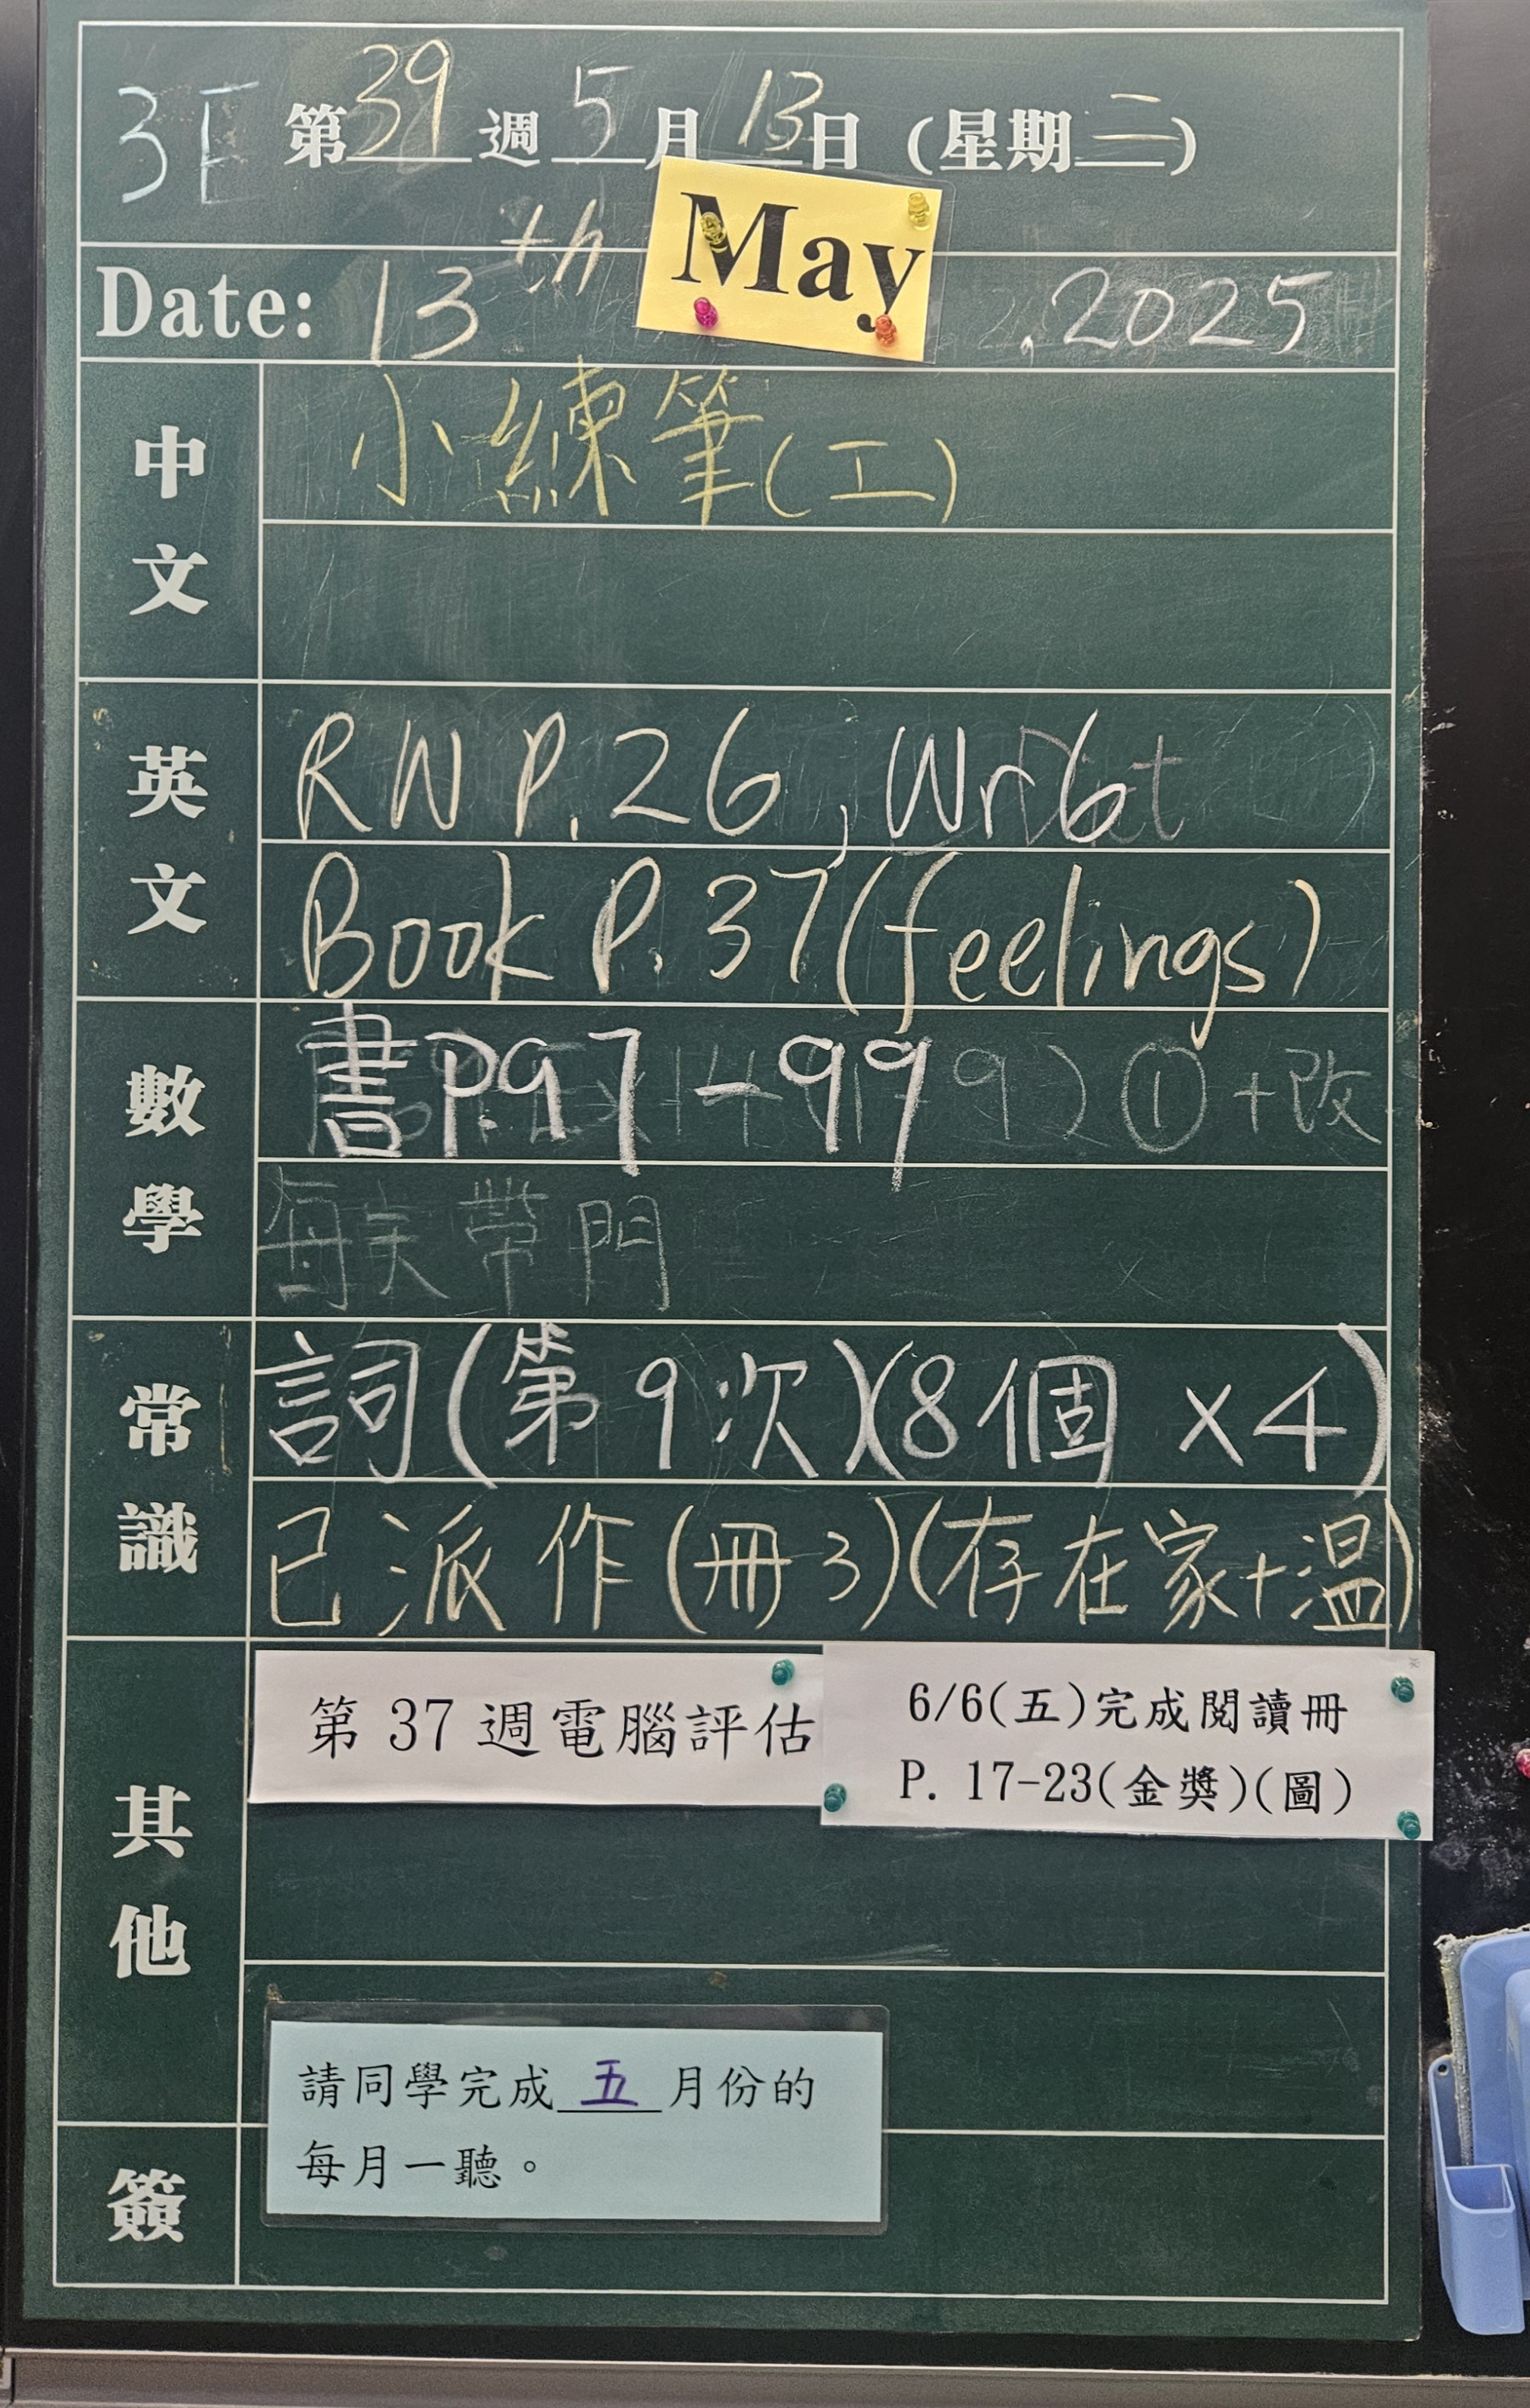 3E 第39週5月13日(星期二)
Date: 13th May, 2025
中文
小練筆(工)
英文
RW P.26, Wr6
Book P.37(feelings)
數學
書P.97-99
常識
詞(第9次)(8個 x4)
已派作(冊3)(存在家+溫)
其他
第 37 週電腦評估
6/6(五)完成閱讀冊
P. 17-23(金獎)(圖)
請同學完成五月份的
每月一聽。
簽